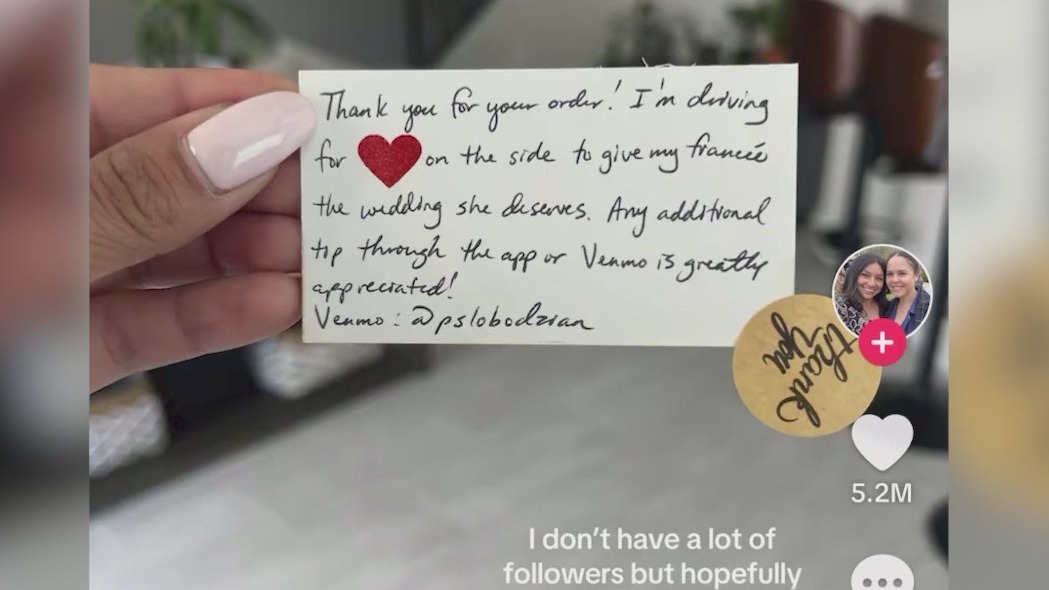 Thank you for your order! I'm driving
for on the side to give my franceé
the wedding she deserves. Any additional
tip through the app or Venmo is greatly
appreciated!
Venmo: @pslobodzian
thank
you
5.2M
I don't have a lot of
followers but hopefully